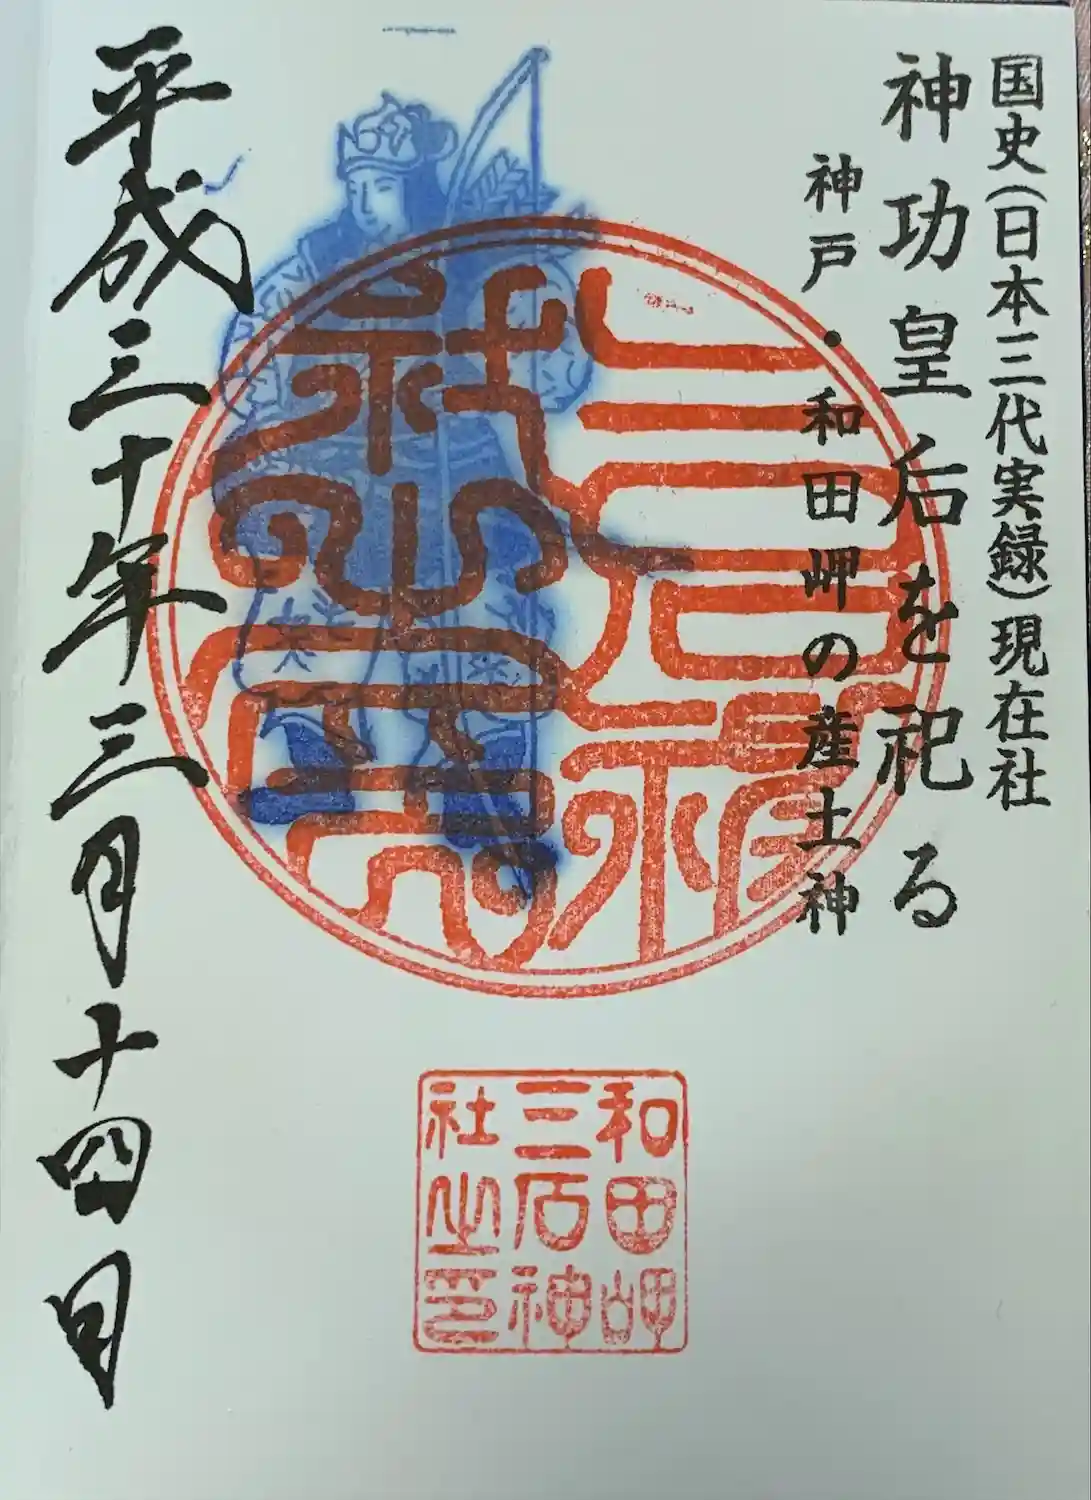 国史(日本三代実録)現在社
神功皇后を祀る
神戸・和田岬の産土神
三石神社之印
和田岬
三石神
社之印
平成三十年三月十四日